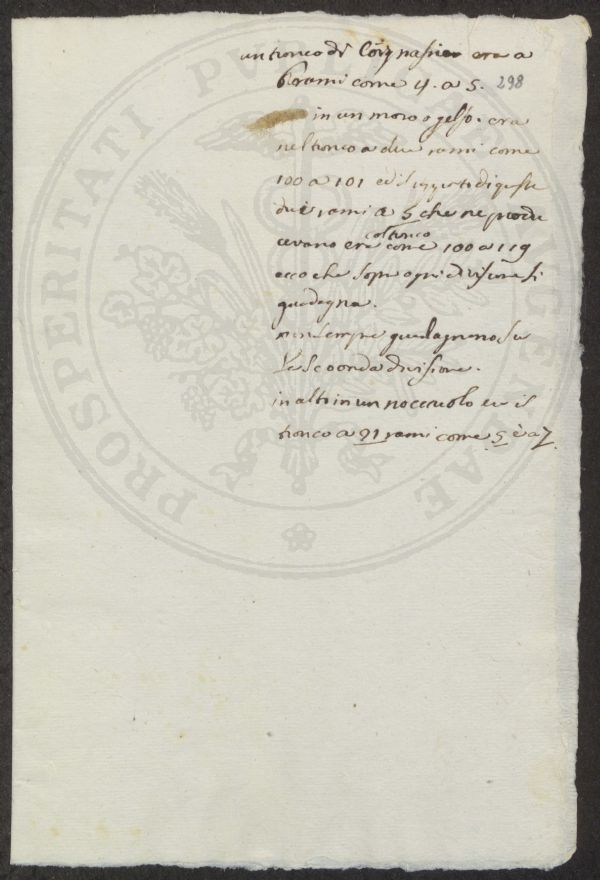 un tronco di era a
6 rami come 4. a 5. 298
in un moro o gelso. era
nel tronco a due rami come
100 a 101 ed il di queste
due rami a 5 che ne produ
cevano era col tronco come 100 a 119
ecco che sopra ogni divisione si
guadagna.
non sempre guadagnano su
la seconda divisione.
in alto in un nocciuolo era il
tronco a 21 rami come 5 è a 7.
PROSPERITATI PUBLICAE AUGENDAE